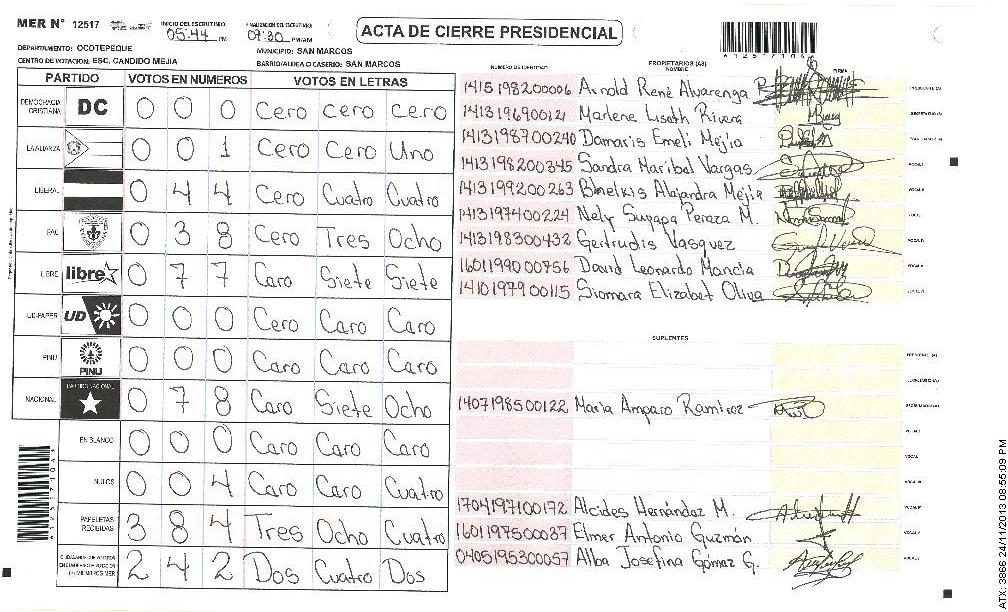 MER Nº 12517
INICIO DEL ESCRUTINIO
05:44 PM
FINALIZACION DEL ESCRUTINIO:
07:30 PM/AM
ACTA DE CIERRE PRESIDENCIAL
DEPARTAMENTO: OCOTEPEQUE
MUNICIPIO: SAN MARCOS
CENTRO DE VOTACION: ESC. CANDIDO MEJIA
BARRIO/ALDEA O CASERIO: SAN MARCOS
PARTIDO VOTOS EN NUMEROS VOTOS EN LETRAS
DEMOCRACIA CRISTIANA DC 0 0 0 Cero cero cero
LA ALIANZA 0 0 1 Cero Cero Uno
LIBERAL 0 4 4 Cero Cuatro Cuatro
PAC 0 3 8 Cero Tres Ocho
LIBRE libre 0 7 7 Caro Siete Siete
UD-FAPER UD 0 0 0 Cero Caro Caro
PINU PINU 0 0 0 Caro Caro Caro
NACIONAL PARTIDO NACIONAL 0 7 8 Caro Siete Ocho
EN BLANCO 0 0 0 Caro Caro Caro
NULOS 0 0 4 Caro Caro Cuatro
PAPELETAS RECIBIDAS 3 8 4 Tres Ocho Cuatro
2 4 2 Dos Cuatro Dos
NUMERO DE IDENTIDAD PROPIETARIOS (AS) NOMBRE FIRMA
1415198200006 Arnold René Alvarenga R PRESIDENTE (A)
Marlene Liseth Rivera SECRETARIO (A)
1413198700240 Damaris Emeli Mejia
1413198200345 Sandra Maribal Vargas VOCAL I
1413199200263 Alajandra Mejia VOCAL II
1413197400224 Nely Suyapa Peraza M.
1413198300432 Gertrudis Vasquez
1601199000756 David Leonardo Mancia
1410197900115 Siomara Elizabet Oliva
SUPLENTES
PRESIDENTE (A)
SECRETARIO (A)
1407198500122 Maria Amparo Ramirez
1704197100172 Alcides Hernández M.
1601197500037 Elmer Antonio Guzmán
0405195300057 Alba Josefina Gómez G.
ATX: 3866 24/11/2013 08:55:09 PM